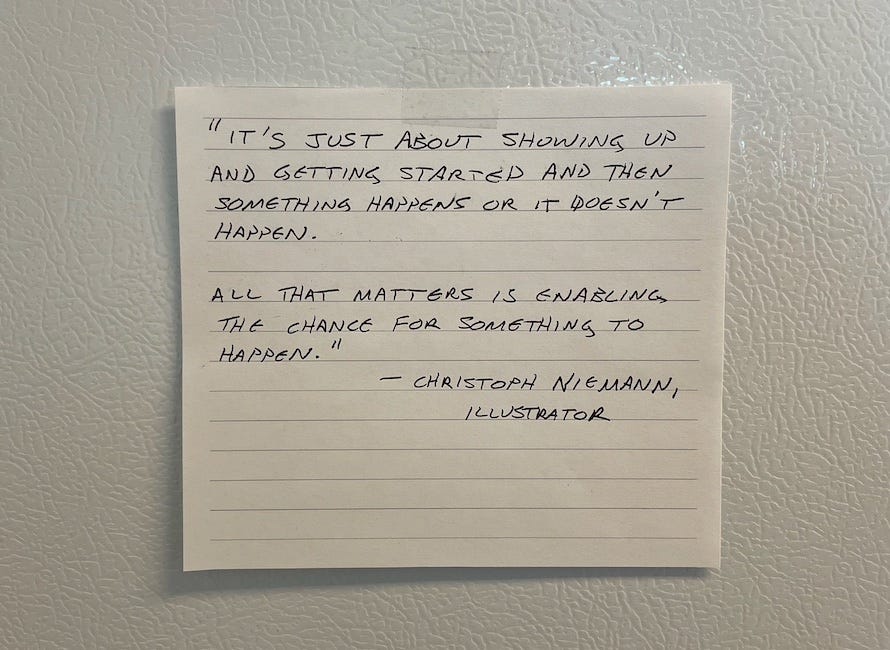 "IT'S JUST ABOUT SHOWING UP
AND GETTING STARTED AND THEN
SOMETHING HAPPENS OR IT DOESN'T
HAPPEN.
ALL THAT MATTERS IS ENABLING
THE CHANCE FOR SOMETHING TO
HAPPEN."
— CHRISTOPH NIEMANN,
ILLUSTRATOR